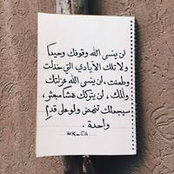 لن ينسى الله وقوفك وحيدًا
ولا تلك الأيادي التي خذلت
وطعنت، لن ينسى الله عزلتك
وذلك، لن يتركك هشًا معي،
سيجعلك تنهض ولو على قدمٍ
واحدة.